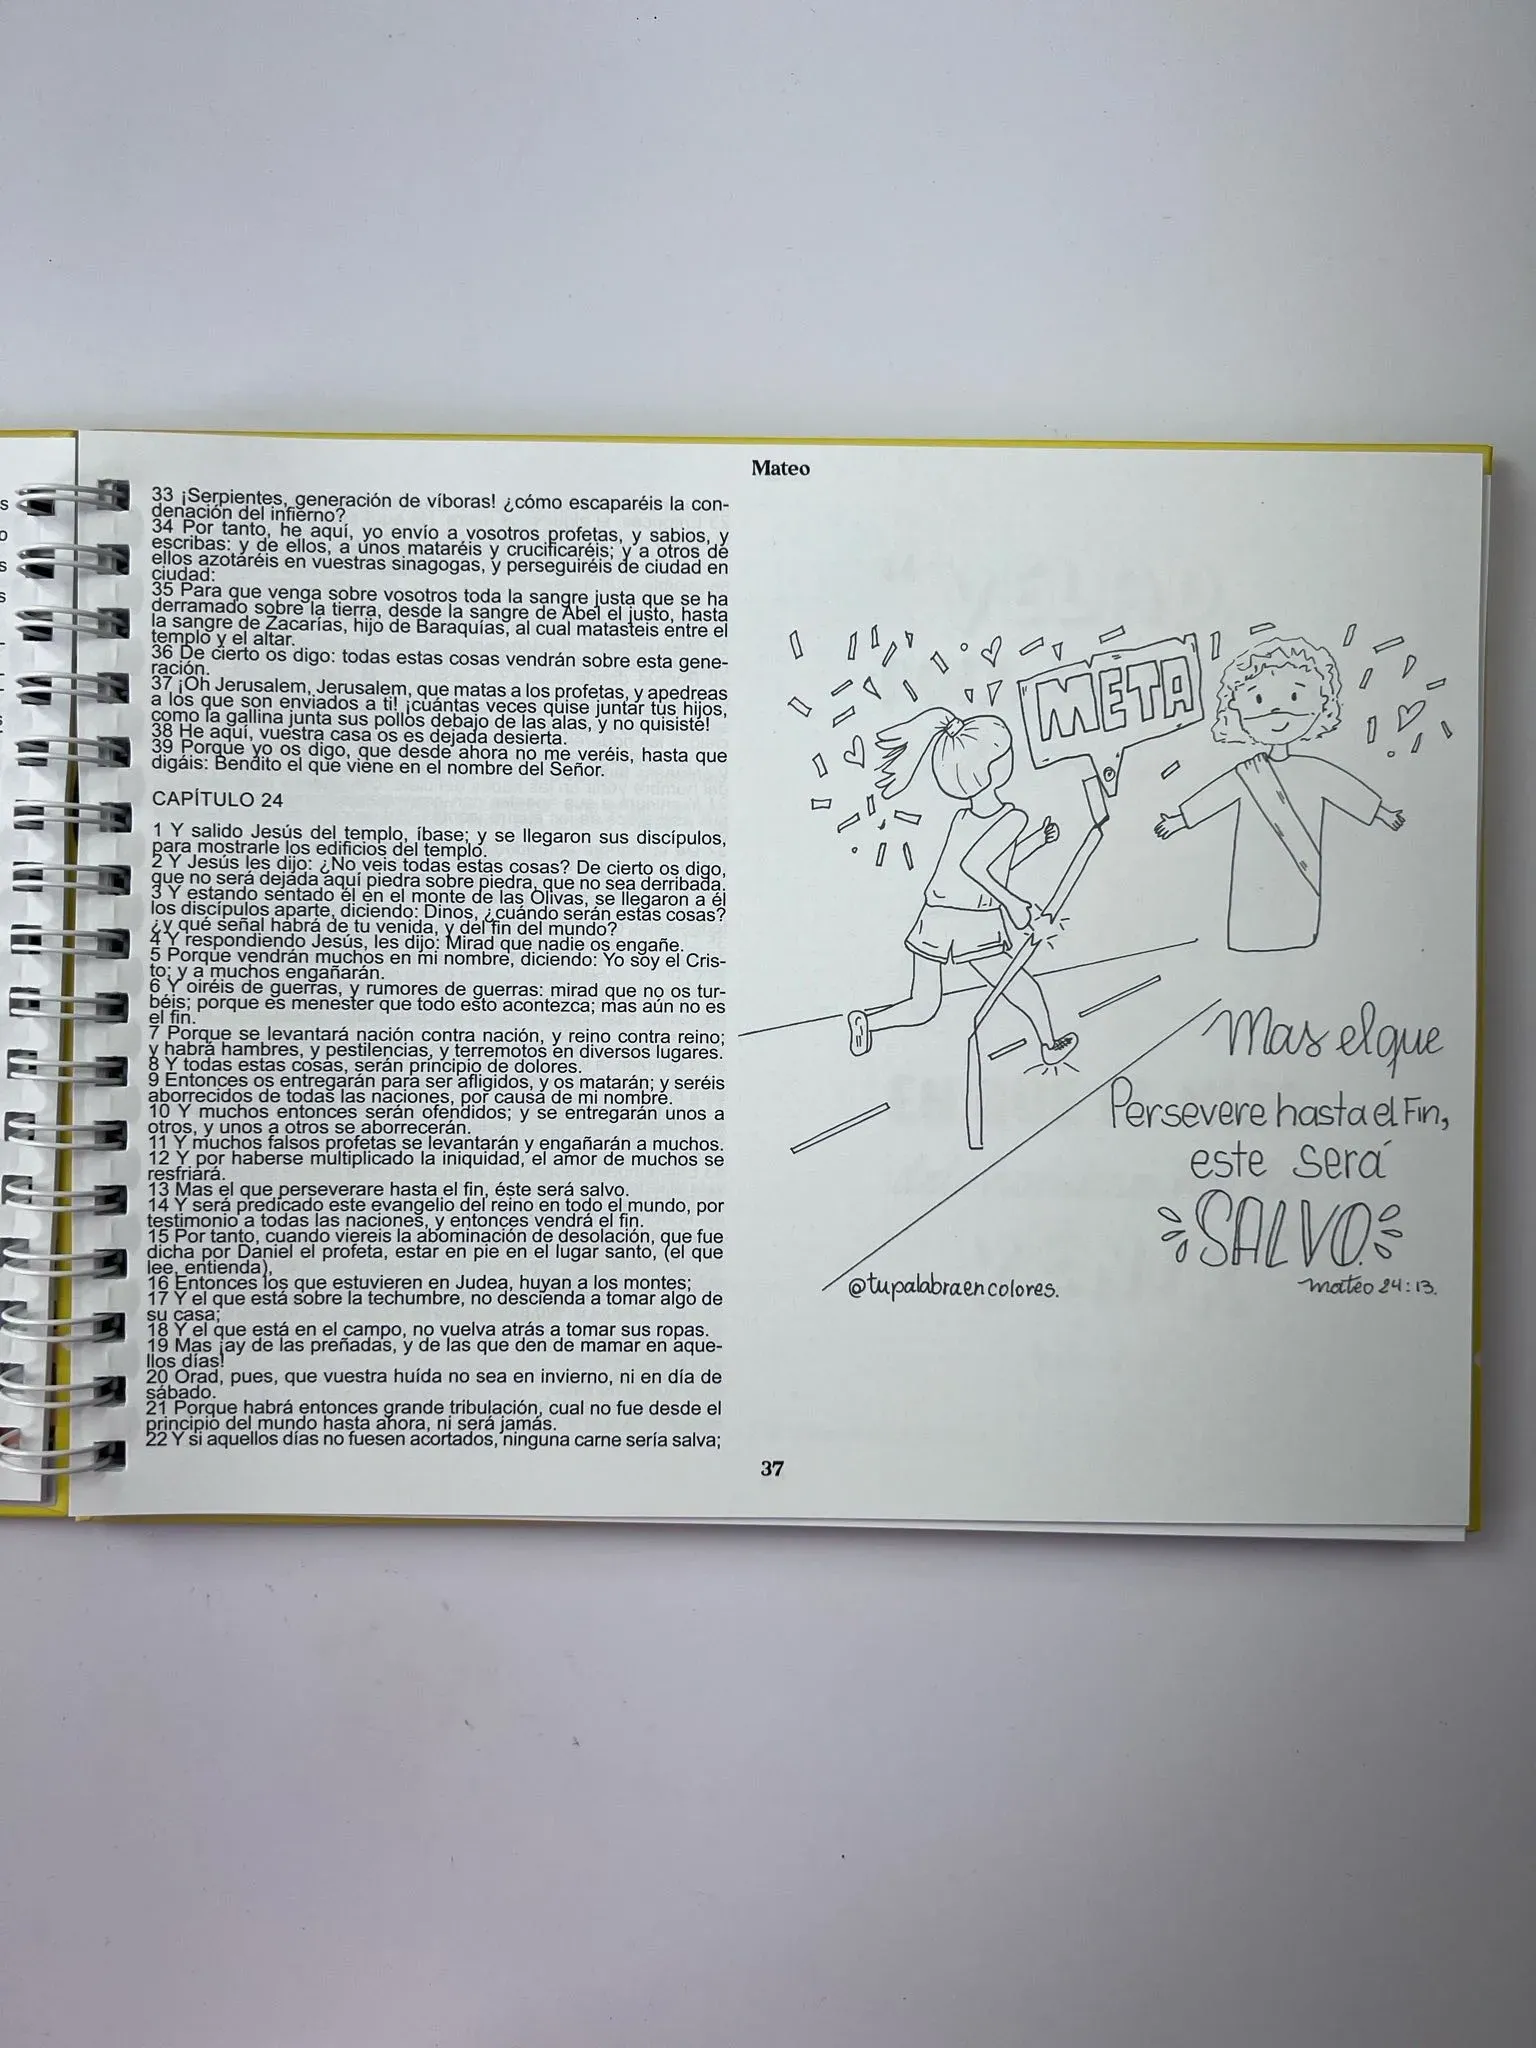 Mateo
33 ¡Serpientes, generación de víboras! ¿cómo escaparéis la con-
denación del infierno?
34 Por tanto, he aquí, yo envío a vosotros profetas, y sabios, y
escribas: y de ellos, a unos mataréis y crucificaréis; y a otros de
ellos azotaréis en vuestras sinagogas, y perseguiréis de ciudad en
ciudad:
35 Para que venga sobre vosotros toda la sangre justa que se ha
derramado sobre la tierra, desde la sangre de Abel el justo, hasta
la sangre de Zacarías, hijo de Baraquías, al cual matasteis entre el
templo y el altar.
36 De cierto os digo: todas estas cosas vendrán sobre esta gene-
ración.
37 ¡Oh Jerusalem, Jerusalem, que matas a los profetas, y apedreas
a los que son enviados a ti! ¡cuántas veces quise juntar tus hijos,
como la gallina junta sus pollos debajo de las alas, y no quisiste!
38 He aquí, vuestra casa os es dejada desierta.
39 Porque yo os digo, que desde ahora no me veréis, hasta que
digáis: Bendito el que viene en el nombre del Señor.
CAPÍTULO 24
1 Y salido Jesús del templo, íbase; y se llegaron sus discípulos,
para mostrarle los edificios del templo.
2 Y Jesús les dijo: ¿No veis todas estas cosas? De cierto os digo,
que no será dejada aquí piedra sobre piedra, que no sea derribada.
3 Y estando sentado él en el monte de las Olivas, se llegaron a él
los discípulos aparte, diciendo: Dinos, ¿cuándo serán estas cosas?
¿y qué señal habrá de tu venida, y del fin del mundo?
4 Y respondiendo Jesús, les dijo: Mirad que nadie os engañe.
5 Porque vendrán muchos en mi nombre, diciendo: Yo soy el Cris-
to; y a muchos engañarán.
6 Y oiréis de guerras, y rumores de guerras: mirad que no os tur-
béis; porque es menester que todo esto acontezca; mas aún no es
el fin.
7 Porque se levantará nación contra nación, y reino contra reino;
y habrá hambres, y pestilencias, y terremotos en diversos lugares.
8 Y todas estas cosas, serán principio de dolores.
9 Entonces os entregarán para ser afligidos, y os matarán; y seréis
aborrecidos de todas las naciones, por causa de mi nombre.
10 Y muchos entonces serán ofendidos; y se entregarán unos a
otros, y unos a otros se aborrecerán.
11 Y muchos falsos profetas se levantarán y engañarán a muchos.
12 Y por haberse multiplicado la iniquidad, el amor de muchos se
resfriará.
13 Mas el que perseverare hasta el fin, éste será salvo.
14 Y será predicado este evangelio del reino en todo el mundo, por
testimonio a todas las naciones, y entonces vendrá el fin.
15 Por tanto, cuando viereis la abominación de desolación, que fue
dicha por Daniel el profeta, estar en pie en el lugar santo, (el que
lee, entienda),
16 Entonces los que estuvieren en Judea, huyan a los montes;
17 Y el que está sobre la techumbre, no descienda a tomar algo de
su casa;
18 Y el que está en el campo, no vuelva atrás a tomar sus ropas.
19 Mas ¡ay de las preñadas, y de las que den de mamar en aque-
llos días!
20 Orad, pues, que vuestra huída no sea en invierno, ni en día de
sábado.
21 Porque habrá entonces grande tribulación, cual no fue desde el
principio del mundo hasta ahora, ni será jamás.
22 Y si aquellos días no fuesen acortados, ninguna carne sería salva;
META
Mas el que
Persevere hasta el Fin,
este será
SALVO.
Mateo 24:13.
@tupalabraencolores.
37